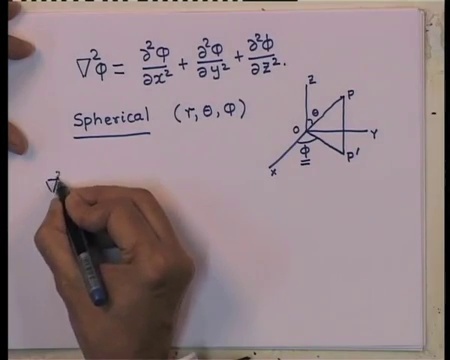 ∇²φ = ∂²φ/∂x² + ∂²φ/∂y² + ∂²φ/∂z².
Spherical (r, θ, φ)
Z
P
θ
O
Y
φ
P'
X
∇²